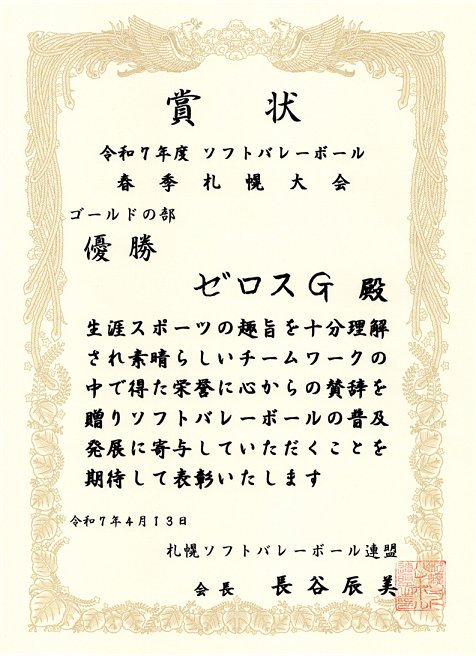 賞状
令和7年度 ソフトバレーボール
春季札幌大会
ゴールドの部
優勝
ゼロスG 殿
生涯スポーツの趣旨を十分理解
され素晴らしいチームワークの
中で得た栄誉に心からの賛辞を
贈りソフトバレーボールの普及
発展に寄与していただくことを
期待して表彰いたします
令和7年4月13日
札幌ソフトバレーボール連盟
会長 長谷辰美